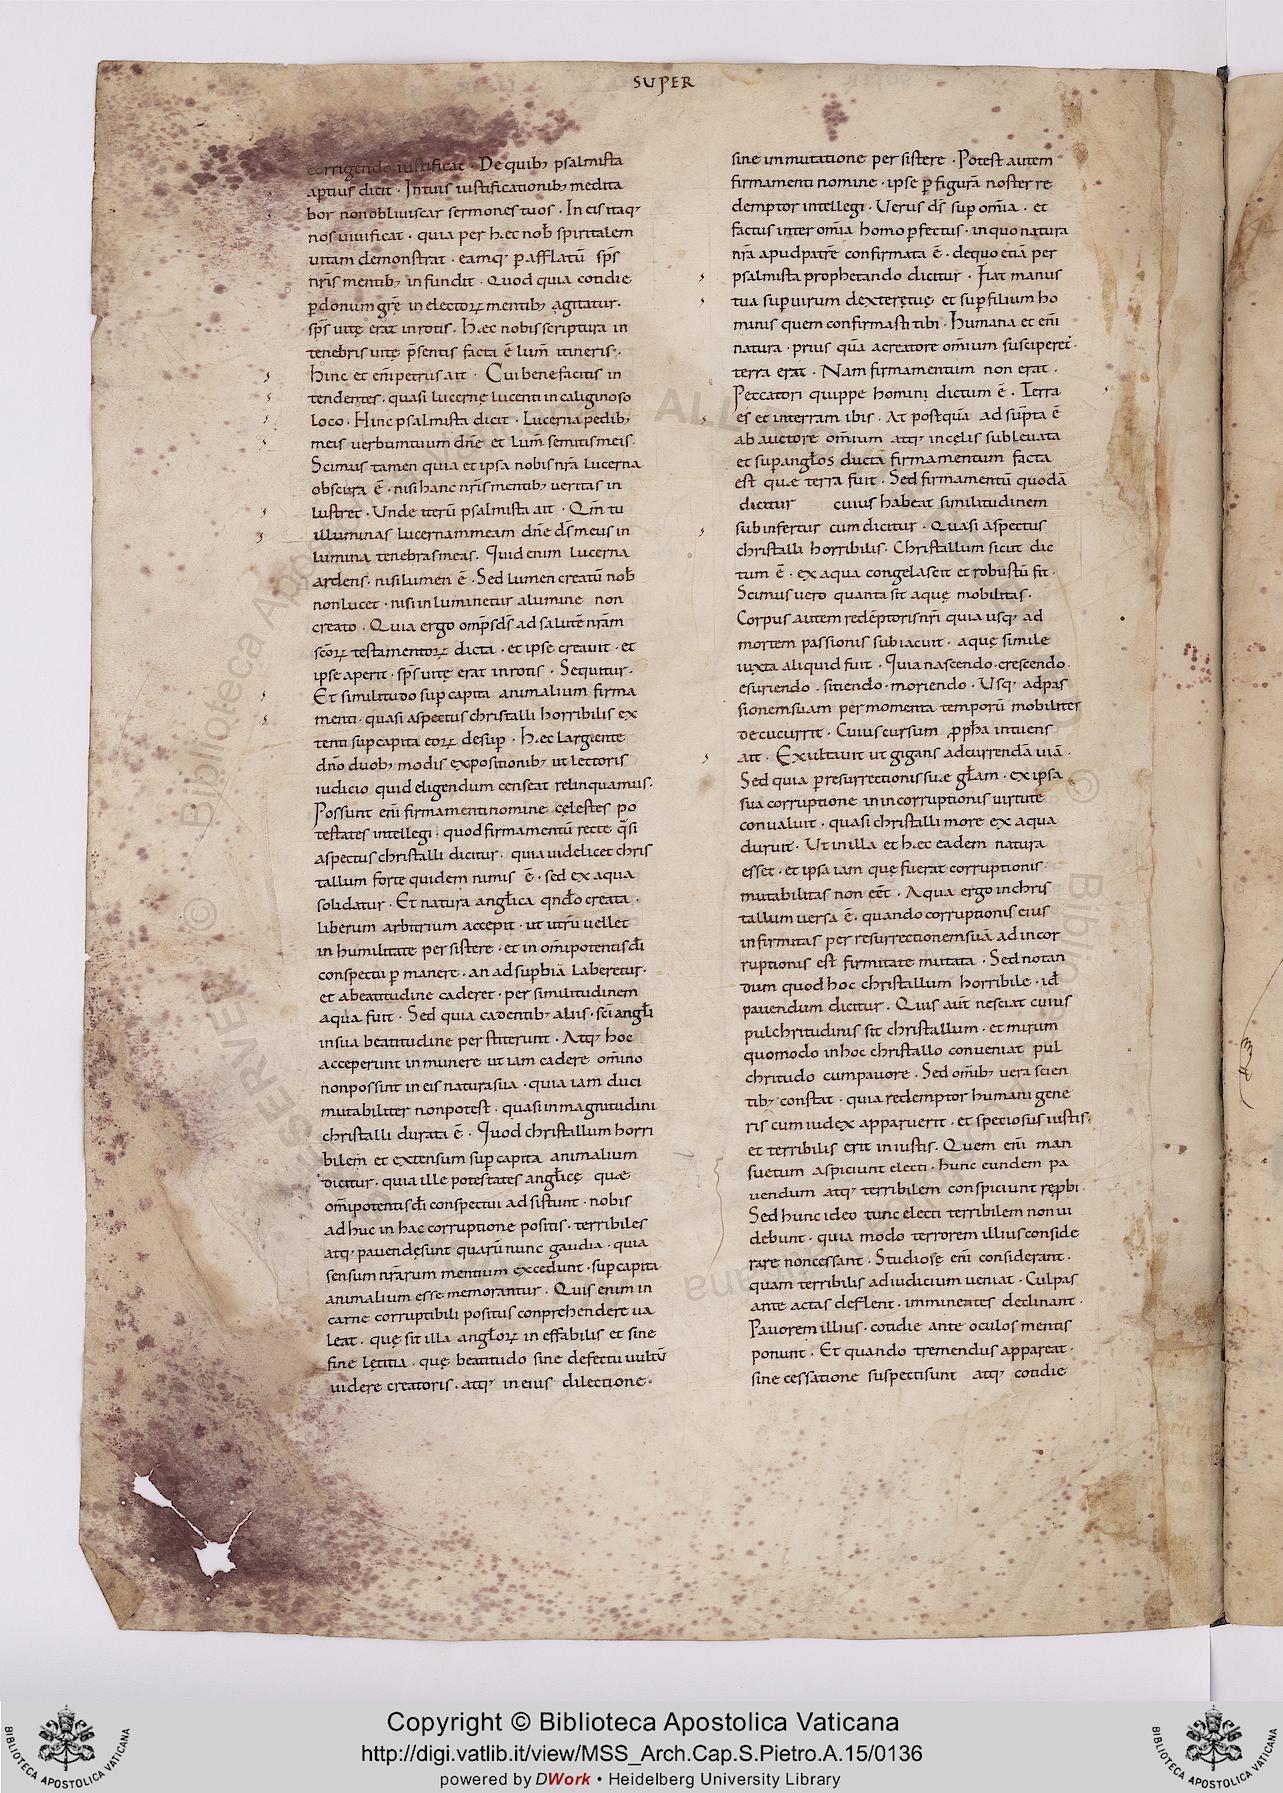 SUPER
corrigendo iustificat · De quibꝫ psalmista
aptius dicit · In tuis iustificationibꝫ medita
bor non obliuiscar sermones tuos · In eis itaqꝫ
nos uiuificat · quia per hæc nob̄ spiritalem
uitam demonstrat · eamqꝫ ꝑ afflatū sp̄s
nr̄is mentibꝫ infundit · Quod quia cotidie
ꝑ donum gr̄ę in electoꝝ mentibꝫ agitatur ·
sp̄s uitę erat in rotis · Hæc nobis scriptura in
tenebris uitę p̄sentis facta ē lum̄ itineris ·
Hinc et enī petrus ait · Cui bene facitis in
tendentes · quasi lucernę lucenti in caliginoso
loco · Hinc psalmista dicit · Lucerna pedibꝫ
meis uerbum tuum dn̄e et lum̄ semitis meis ·
Scimus tamen quia et ipsa nobis nr̄a lucerna
obscura ē · nisi hanc nr̄is mentibꝫ ueritas in
lustret · Unde iterū psalmista ait · Qm̄ tu
illuminas lucernam meam dn̄e ds̄ meus in
lumina tenebras meas · Quid enim lucerna
ardens · nisi lumen ē · Sed lumen creatū nob̄
non lucet · nisi inluminetur a lumine non
creato · Quia ergo omp̄s ds̄ ad salutē nr̄am
sc̄oꝝ testamentoꝝ dicta · et ipse creauit · et
ipse aperit · sp̄s uitę erat in rotis · Sequitur ·
Et similitudo suꝑ capita animalium firma
menti · quasi aspectus christalli horribilis ex
tenti suꝑ capita eoꝝ desuꝑ · Hæc largiente
dn̄o duobꝫ modis expositionibꝫ ut lectoris
iudicio quid eligendum censeat relinquamus ·
Possunt enī firmamenti nomine cęlestes po
testates intellegi · quod firmamentū recte q̄si
aspectus christalli dicitur · quia uidelicet chris
tallum forte quidem nimis ē · sed ex aqua
solidatur · Et natura angl̄ica qndo creata ·
liberum arbitrium accepit · ut utrū uellet
in humilitate persistere · et in om̄ipotentis dī
conspectu ꝑmanere · an ad suꝑbiā laberetur ·
et a beatitudine caderet · per similitudinem
aqua fuit · Sed quia cadentibꝫ aliis · sc̄i angl̄i
in sua beatitudine perstiterunt · Atqꝫ hoc
acceperunt in munere ut iam cadere om̄ino
non possint in eis natura sua · quia iam duci
mutabiliter non potest · quasi in magnitudini
christalli durata ē · Quod christallum horri
bilem et extensum suꝑ capita animalium
dicitur · quia ille potestates angl̄icę quæ
om̄ipotentis dī conspectui adsistunt · nobis
adhuc in hac corruptione positis · terribiles
atqꝫ pauendę sunt quarū nunc gaudia · quia
sensum nr̄arum mentium excedunt · suꝑ capita
animalium esse memorantur · Quis enim in
carne corruptibili positus conprehendere ua
leat · quę sit illa angl̄oꝝ ineffabilis et sine
fine lętitia · quę beatitudo sine defectu uultū
uidere creatoris · atqꝫ in eius dilectione ·
sine inmutatione persistere · Potest autem
firmamenti nomine · ipse ꝑ figurā noster re
demptor intellegi · Uerus ds̄ suꝑ om̄ia · et
factus inter om̄ia homo ꝑfectus · in quo natura
nr̄a apud patrē confirmata ē · de quo etiā per
psalmista prophetando dicitur · Fiat manus
tua suꝑ uirum dexterę tuę et suꝑ filium ho
minis quem confirmasti tibi · Humana et enī
natura · prius quā a creatore om̄ium susciperet̄ ·
terra erat · Nam firmamentum non erat ·
Peccatori quippe homini dictum ē · Terra
es et in terram ibis · At postquā adsūpta ē
ab auctore om̄ium atqꝫ in cęlis subleuata
et suꝑ angl̄os ducta firmamentum facta
est quæ terra fuit · Sed firmamentū quodā
dicitur cuius habeat similitudinem
subinfertur cum dicitur · Quasi aspectus
christalli horribilis · Christallum sicut dic
tum ē · ex aqua congelascit et robustū fit ·
Scimus uero quanta sit aquę mobilitas ·
Corpus autem redēptoris nr̄i quia usqꝫ ad
mortem passionis subiacuit · aquę simile
iuxta aliquid fuit · Quia nascendo · crescendo ·
esuriendo · sitiendo · moriendo · Usqꝫ ad pas
sionem suam per momenta temporū mobiliter
decucurrit · Cuius cursum ꝓph̄a intuens
ait · Exultauit ut gigans ad currendā uiā ·
Sed quia ꝑ resurrectionis suæ gl̄am · ex ipsa
sua corruptione in incorruptionis uirtute
conualuit · quasi christalli more ex aqua
duruit · Ut in illa et hæc eadem natura
esset · et ipsa iam quę fuerat corruptionis ·
mutabilitas non eēt · Aqua ergo in chris
tallum uersa ē · quando corruptionis eius
infirmitas per resurrectionem suā ad incor
ruptionis est firmitate mutata · Sed notan
dum quod hoc christallum horribile · id̄
pauendum dicitur · Quis aut̄ nesciat cuius
pulchritudinis sit christallum · et mirum
quomodo in hoc christallo conueniat pul
chritudo cum pauore · Sed om̄ibꝫ uera scien
tibꝫ constat · quia redemptor humani gene
ris cum iudex apparuerit · et speciosus iustis ·
et terribilis erit iniustis · Quem enī man
suetum aspiciunt electi · hunc eundem pa
uendum atqꝫ terribilem conspiciunt reꝓbi ·
Sed hunc ideo tunc electi terribilem non ui
debunt · quia modo terrorem illius conside
rare non cessant · Studiose enī considerant ·
quam terribilis ad iudicium ueniat · Culpas
ante actas deflent · imminentes declinant ·
Pauorem illius · cotidie ante oculos mentis
ponunt · Et quando tremendus appareat ·
sine cessatione suspecti sunt atqꝫ cotidie
Copyright © Biblioteca Apostolica Vaticana
http://digi.vatlib.it/view/MSS_Arch.Cap.S.Pietro.A.15/0136
powered by DWork • Heidelberg University Library
BIBLIOTECA APOSTOLICA VATICANA
BIBLIOTECA APOSTOLICA VATICANA